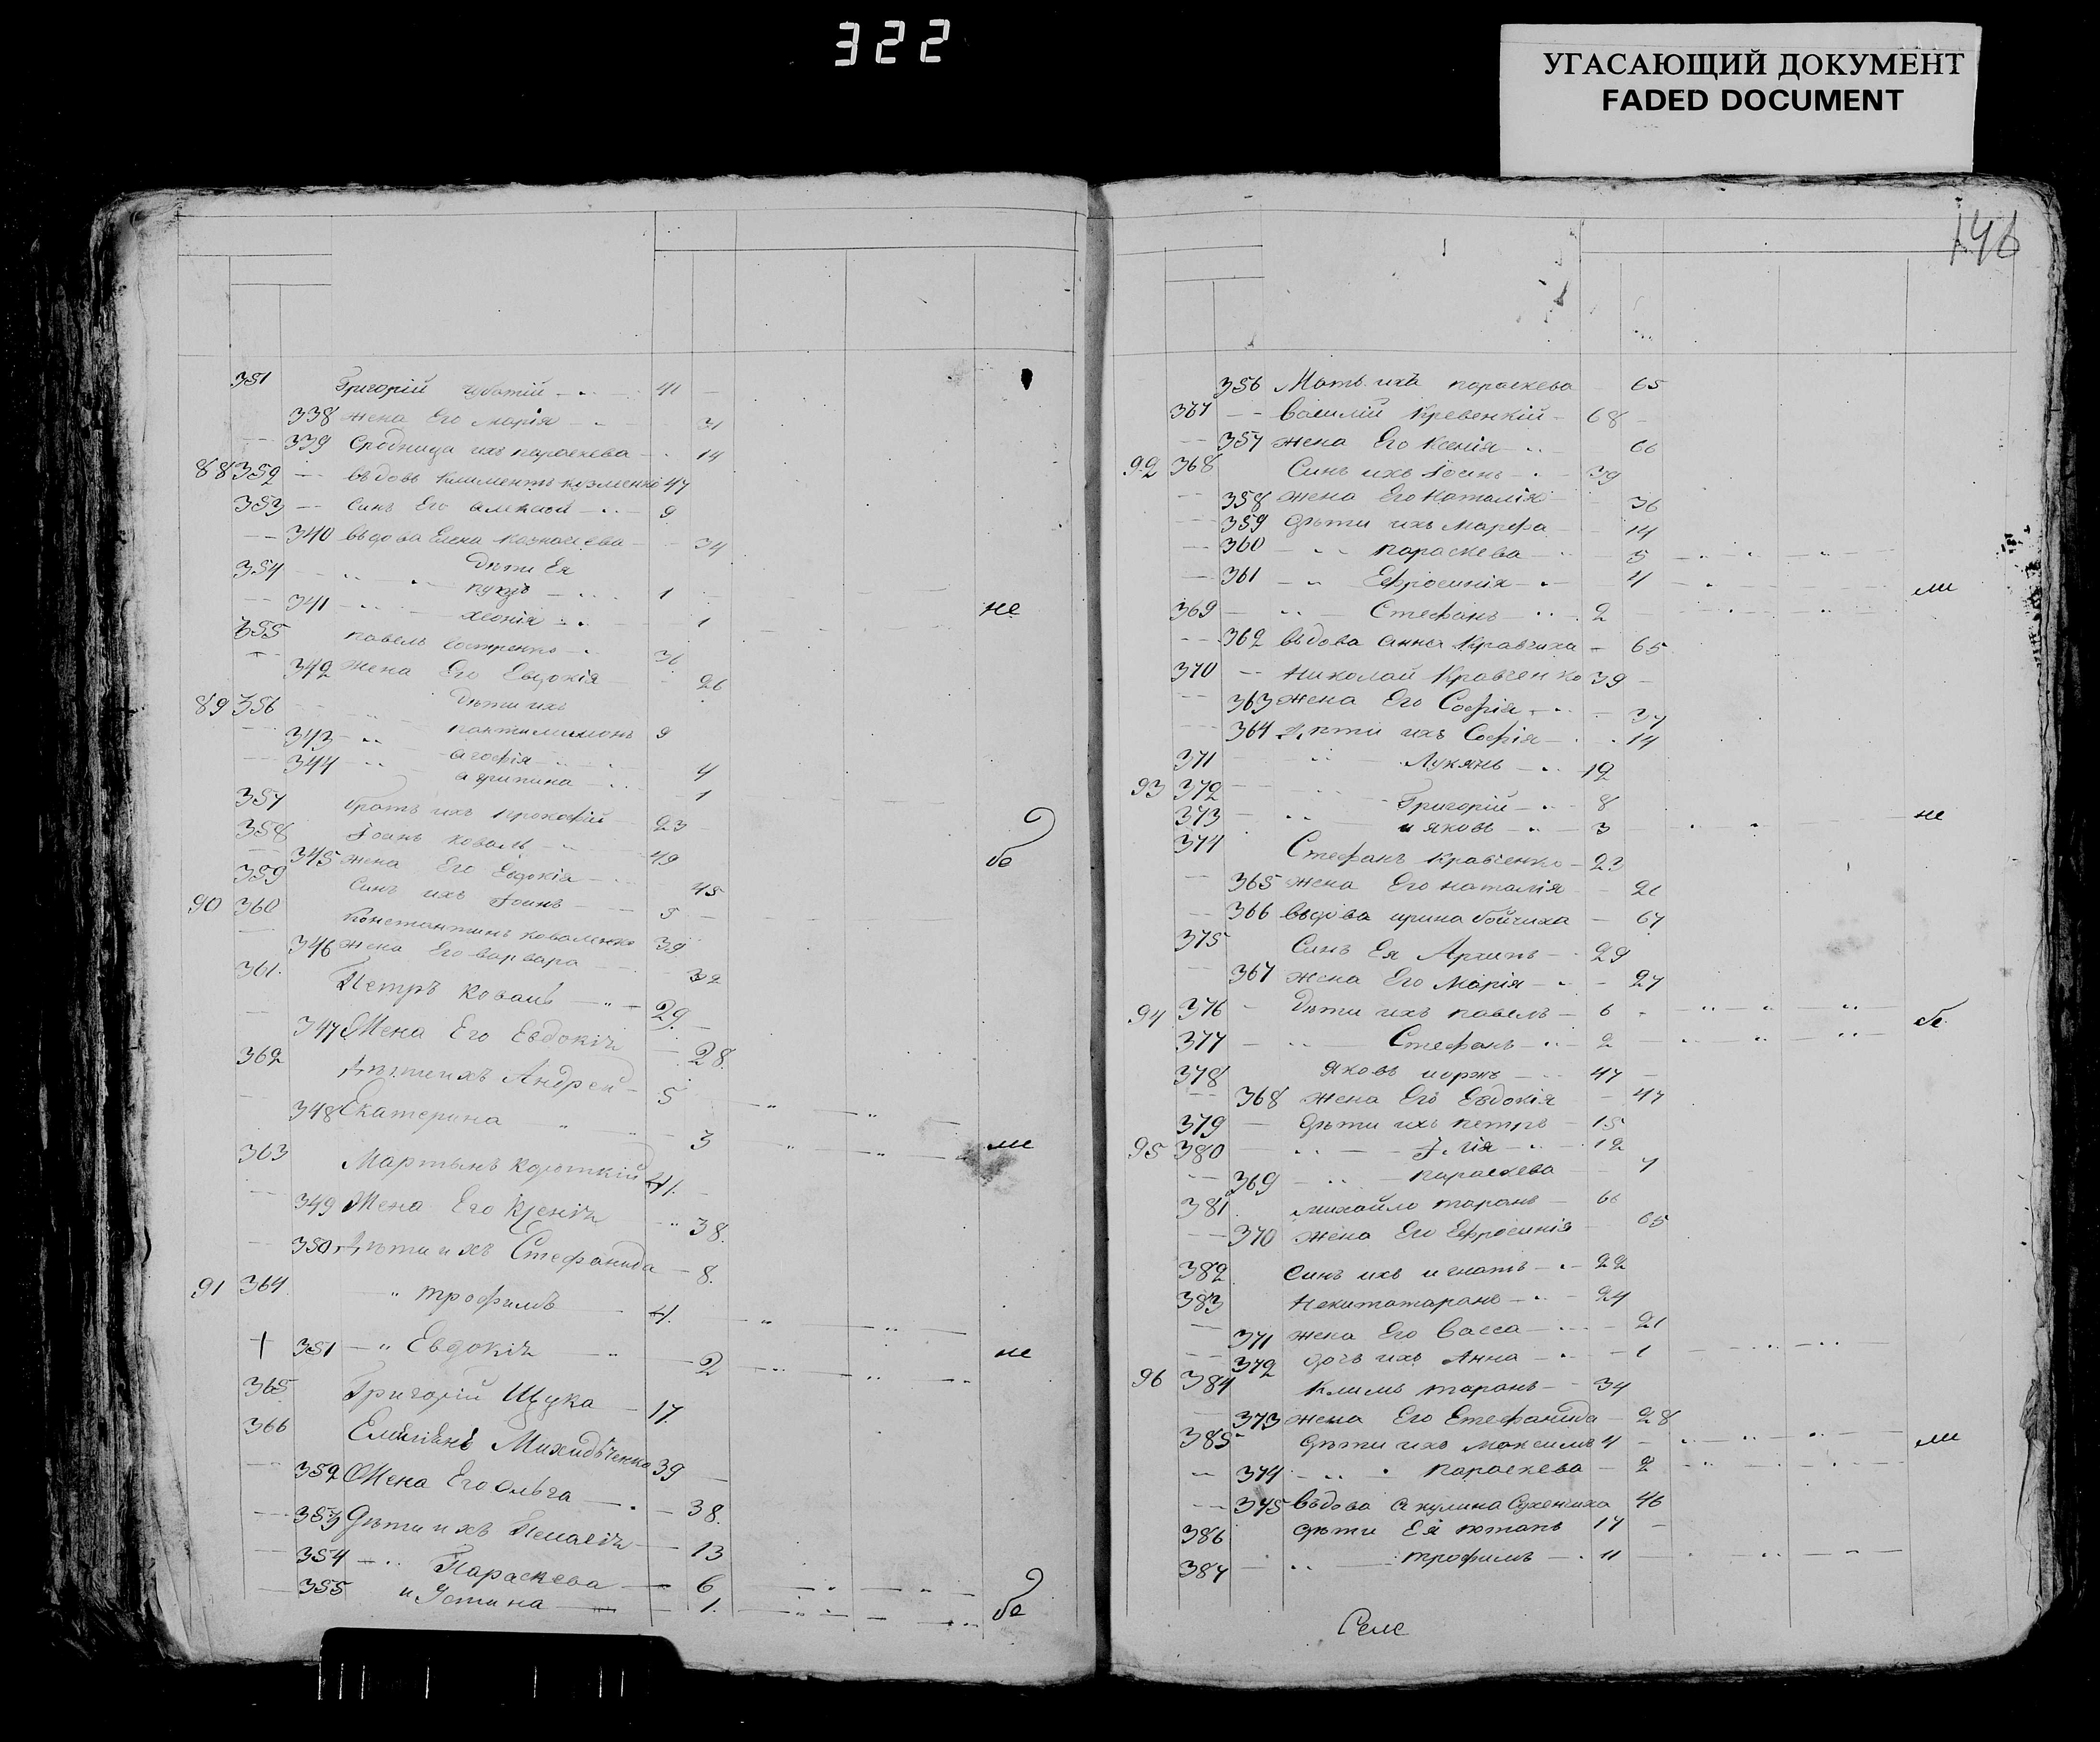 322
УГАСАЮЩИЙ ДОКУМЕНТ
FADED DOCUMENT
351 Григорій 41
338 жена Его Марія 31
339 Сродница ихъ параскева 14
88 352 вѣдовъ Климентъ Кузменко 47
353 Синъ Его алексій 9
340 вѣдова Елена 34
354 Дѣти Ея
1
341 1 не
355 павелъ 36
342 Жена Его Евдокія 26
89 356 Дѣти ихъ
пантилимонъ 9
343 агофія 4
344 агрипина 1
357 братъ ихъ прокофій 23
358 Іоанъ коваль 49 бе
345 жена Его Евдокія 45
359 Синъ ихъ Іоанъ 5
90 360 Константинъ коваленко 39
346 жена Его варвара 32
361 Петръ Коваль 29
347 Жена Его Евдокія 28
362 Дѣти ихъ Андрей 5
348 Екатерина 3 ли
363 Мартынъ Короткій 41
349 Жена Его Ксенія 38
350 Дѣти ихъ Стефанида 8
91 364 трофимъ 4
351 Евдокія 2 не
365 Григорій Щука 17
366 Емиліанъ 39
352 Жена Его Ольга 38
353 Дѣти ихъ Пелагія 13
354 Параскева 6
355 и Устина 1 бе
146
356 Мать ихъ параскева 65
367 Василій Кревенкій 68
357 жена Его Ксенія 66
92 368 Синъ ихъ Іоанъ 39
358 жена Его Наталія 36
359 Дѣти ихъ Марфа 14
360 параскева 5
361 Ефросинія 4 ли
369 Стефанъ 2
362 вѣдова Анна Кравчиха 65
370 Николай Кравченко 39
363 жена Его Софія 37
364 Дѣти ихъ Софія 14
371 Лукянъ 12
93 372 Григорій 8
373 и яковъ 3 не
374 Стефанъ Кравченко 23
365 жена Его наталія 21
366 вѣдова ирина бойчиха 67
375 Синъ Ея Архипъ 29
367 жена Его Марія 27
94 376 Дѣти ихъ павелъ 6 бе
377 Стефанъ 2
378 Яковъ 47
368 жена Его Евдокія 47
379 Дѣти ихъ петръ 15
95 380 Ілія 12
369 параскева 7
381 михайло таранъ 66
370 жена Его Ефросинія 65
382 Синъ ихъ игнатъ 22
383 Никита таранъ 24
371 жена Его Васса 21
372 дочь ихъ Анна 1
96 384 Климъ таранъ 34
373 жена Его Стефанида 28
385 Дѣти ихъ максимъ 4 ли
374 параскева 2
375 вѣдова Акулина 46
386 дѣти Ея потапъ 17
387 трофимъ 11
Селе